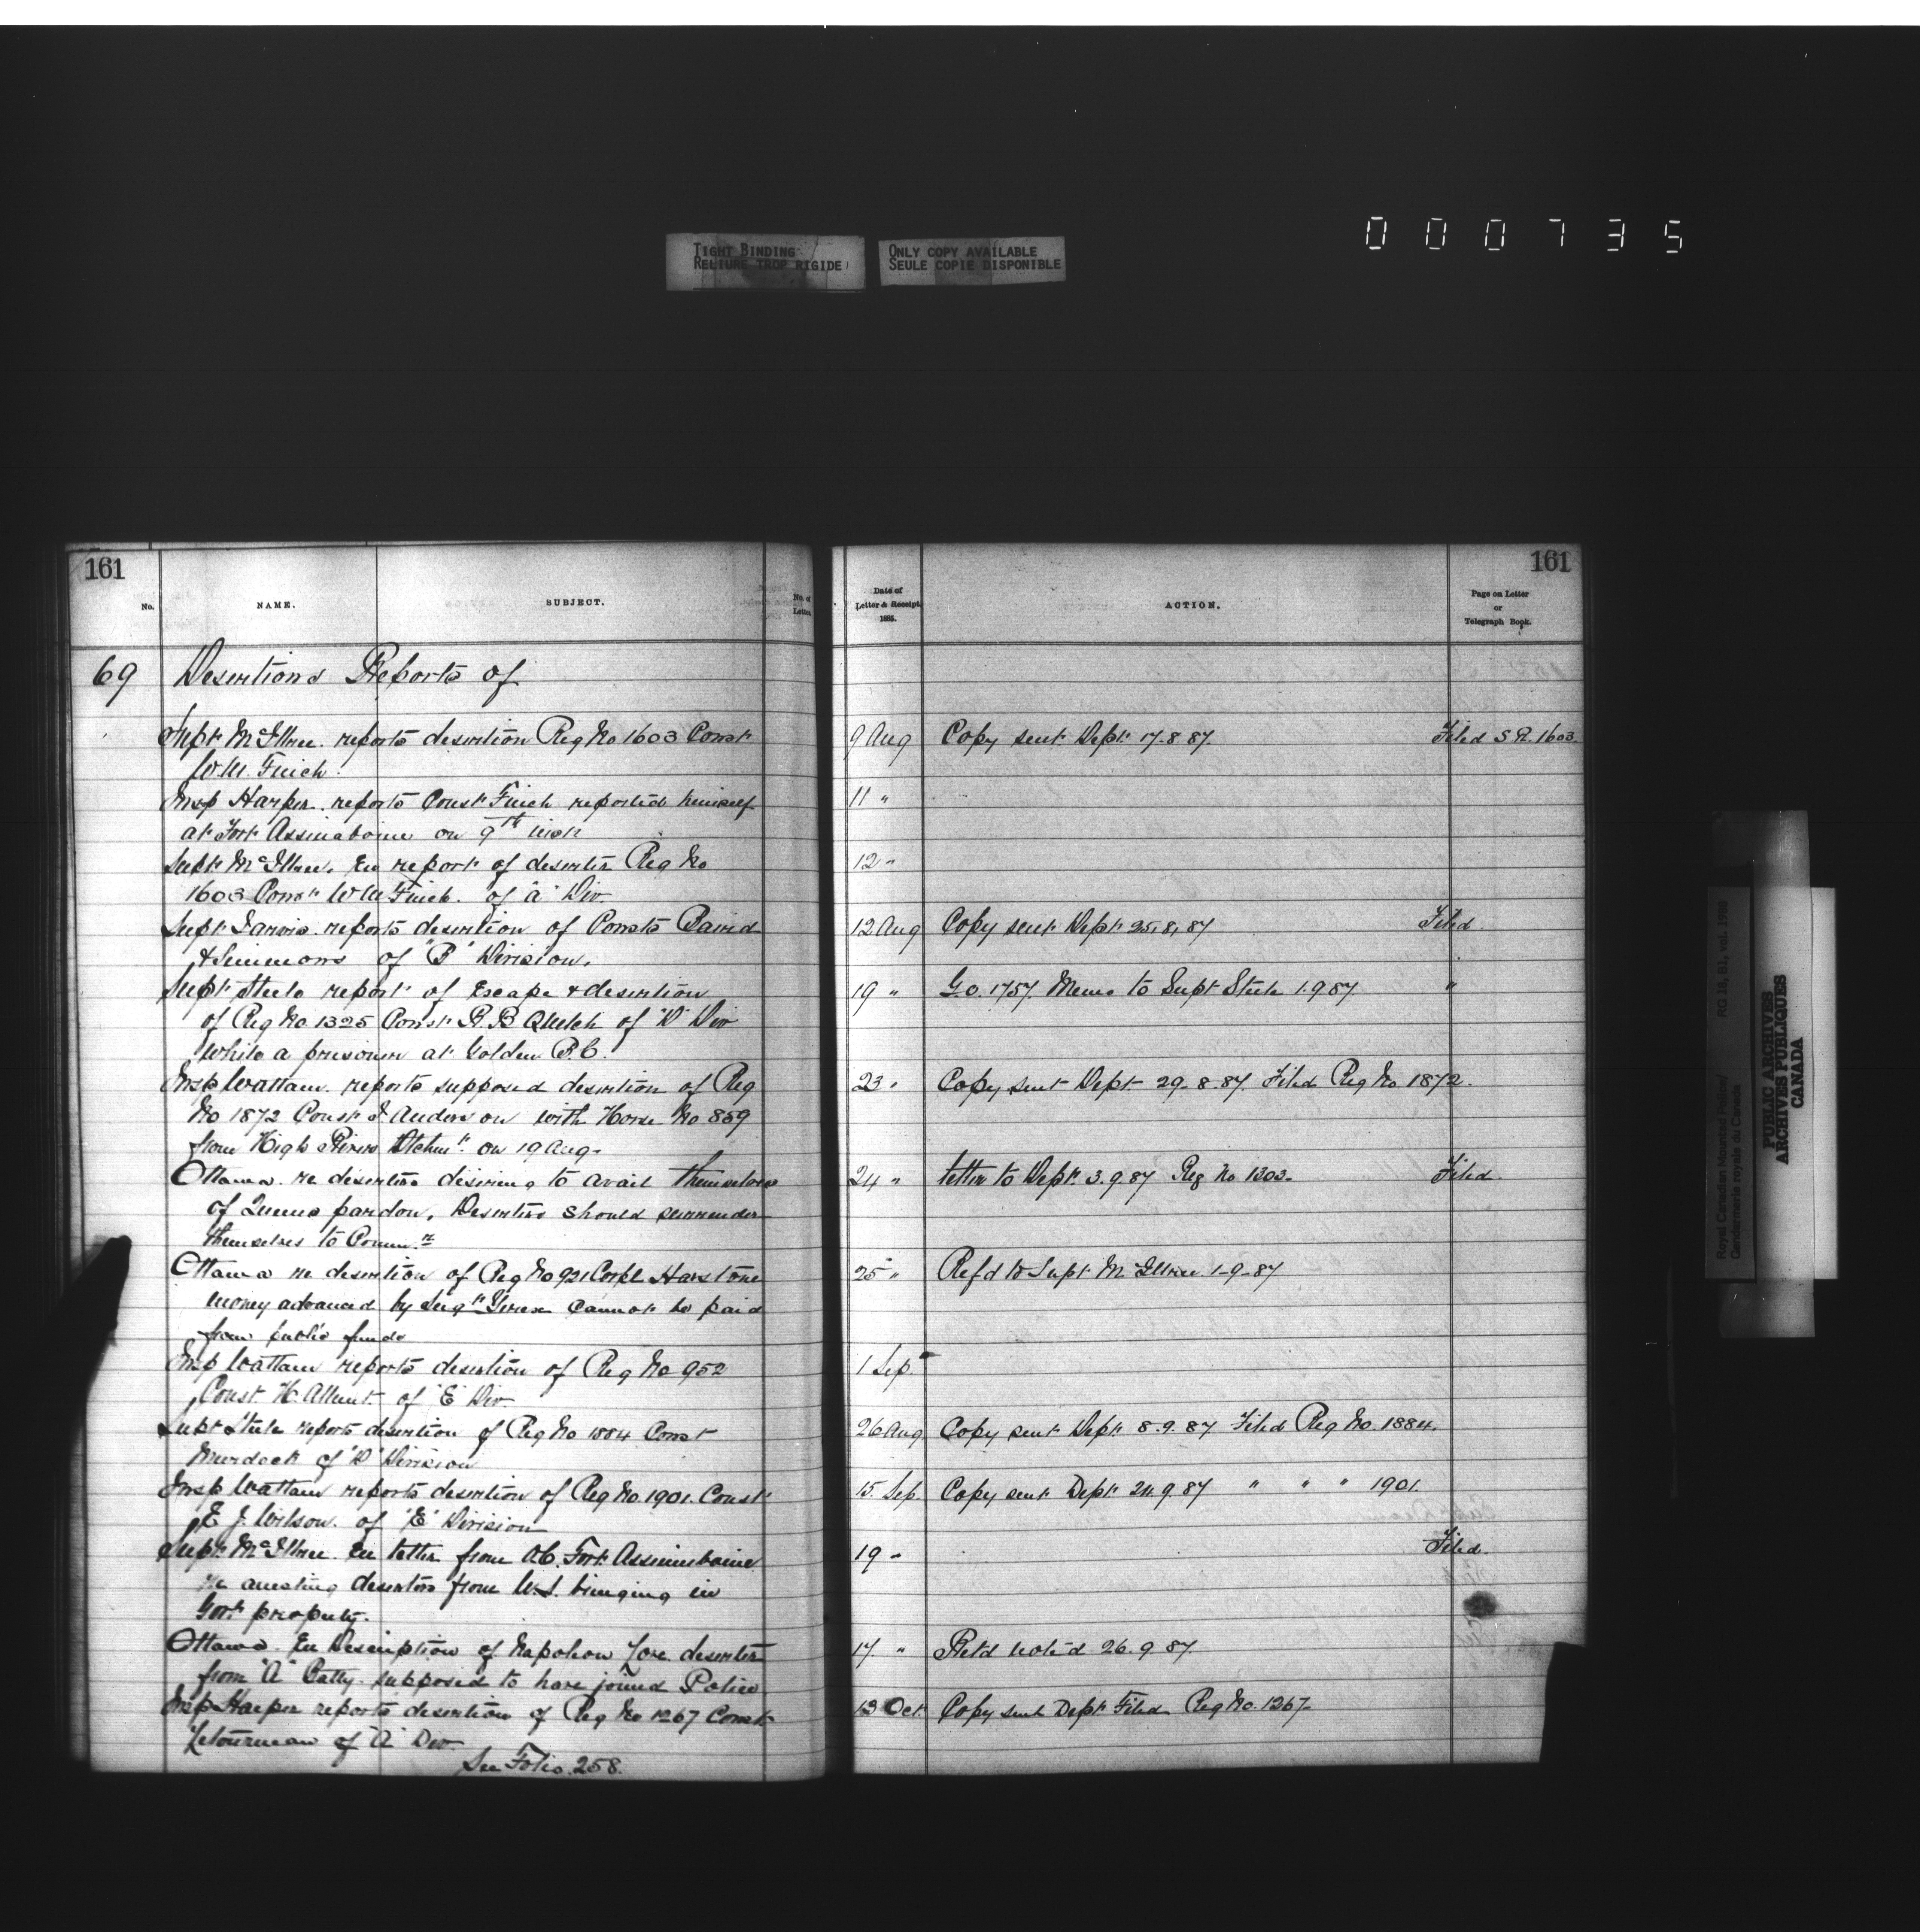 000735
TIGHT BINDING
RELIURE TROP RIGIDE
ONLY COPY AVAILABLE
SEULE COPIE DISPONIBLE
161
No.
NAME.
SUBJECT.
No. of Letter
69 Desertions Reports of
Supt McIllree. reports desertion Reg No 1603 Const
W.M. Finch.
Insp Harper. reports Const Finch reported himself
at Fort Assinaboine on 9th inst
Supt McIllree. En report of deserter Reg No
1603 Const W M Finch. of "A" Div
Supt Jarvis reports desertion of Consts Baird
& Simmons of "B" Division.
Supt Steele report of Escape & desertion
of Reg No. 1325 Const R. B Quelch of "D" Div
while a prisoner at Golden B.C.
Insp Wattam. reports supposed desertion of Reg
No 1872 Const J Anderson with Horse No 859
from High River Detchmt on 19 Aug.
Ottawa. re deserters desiring to avail themselves
of Queens pardon. Deserters should surrender
themselves to Commr
Ottawa re desertion of Reg No 921 Corpl Harstone
money advanced by Sergt cannot be paid
from public funds
Insp Wattam reports desertion of Reg No 952
Const H. of "E" Div
Supt Steele reports desertion of Reg No 1884 Const
Murdock of "D" Division
Insp Wattam reports desertion of Reg No. 1901. Const
E J. Wilson. of "E" Division
Supt McIllree En letter from O.C. Fort Assiniboine
re arresting deserters from U.S. bringing in
Govt property.
Ottawa. En Description of Napoleon deserter
from "A" Batty. supposed to have joined Police
Insp Harper reports desertion of Reg No 1267 Const
Letourneau of "A" Div.
See Folio. 258.
161
Date of
Letter & Receipt
1885.
ACTION.
Page on Letter
or
Telegraph Book.
9 Aug Copy sent Dept 17.8.87. Filed S.R. 1603.
11 "
12 "
12 Aug Copy sent Dept 25.8.87 Filed.
19 " G.O. 1757. Memo to Supt Steele 1.9.87. "
23 " Copy sent Dept 29.8.87. Filed Reg No 1872.
24 " letter to Dept. 3.9.87 Reg No 1303. Filed.
25 " Refd to Supt McIllree 1-9-87
1 Sep.
26 Aug Copy sent Dept 8.9.87 Filed Reg No. 1884.
15. Sep. Copy sent Dept 21.9.87 " " " 1901.
19 " Filed.
17. " Retd noted 26.9.87.
13 Oct. Copy sent Dept Filed Reg No. 1267
Royal Canadian Mounted Police
Gendarmerie royale du Canada
RG 18, B1, vol. 1988
PUBLIC ARCHIVES
ARCHIVES PUBLIQUES
CANADA